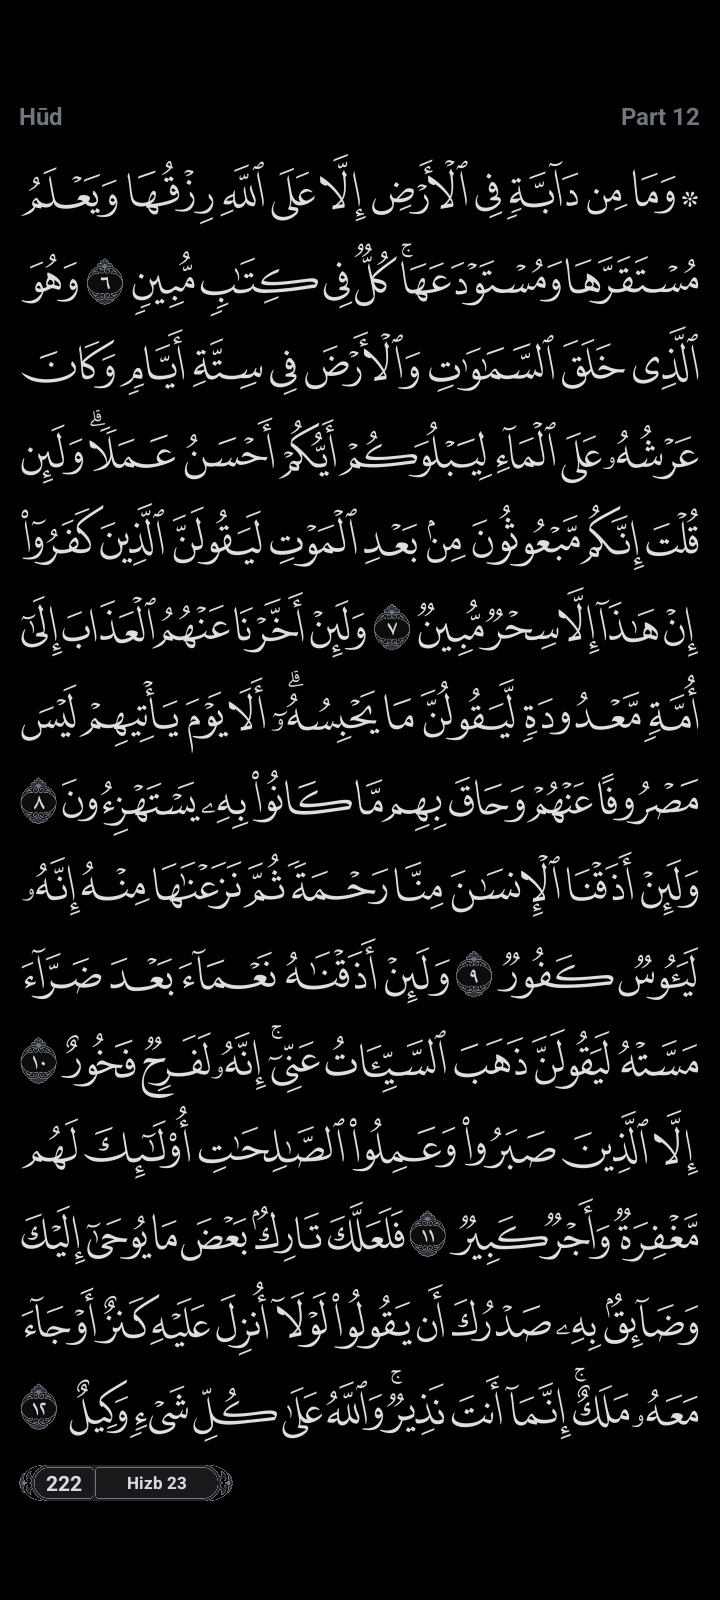 Hūd
Part 12
۞ وَمَا مِن دَآبَّةٍ فِى ٱلْأَرْضِ إِلَّا عَلَى ٱللَّهِ رِزْقُهَا وَيَعْلَمُ
مُسْتَقَرَّهَا وَمُسْتَوْدَعَهَا ۚ كُلٌّ فِى كِتَـٰبٍ مُّبِينٍ ٦ وَهُوَ
ٱلَّذِى خَلَقَ ٱلسَّمَـٰوَٰتِ وَٱلْأَرْضَ فِى سِتَّةِ أَيَّامٍ وَكَانَ
عَرْشُهُۥ عَلَى ٱلْمَآءِ لِيَبْلُوَكُمْ أَيُّكُمْ أَحْسَنُ عَمَلًا ۗ وَلَئِن
قُلْتَ إِنَّكُم مَّبْعُوثُونَ مِنۢ بَعْدِ ٱلْمَوْتِ لَيَقُولَنَّ ٱلَّذِينَ كَفَرُوٓا۟
إِنْ هَـٰذَآ إِلَّا سِحْرٌ مُّبِينٌ ٧ وَلَئِنْ أَخَّرْنَا عَنْهُمُ ٱلْعَذَابَ إِلَىٰٓ
أُمَّةٍ مَّعْدُودَةٍ لَّيَقُولُنَّ مَا يَحْبِسُهُۥٓ ۗ أَلَا يَوْمَ يَأْتِيهِمْ لَيْسَ
مَصْرُوفًا عَنْهُمْ وَحَاقَ بِهِم مَّا كَانُوا۟ بِهِۦ يَسْتَهْزِءُونَ ٨
وَلَئِنْ أَذَقْنَا ٱلْإِنسَـٰنَ مِنَّا رَحْمَةً ثُمَّ نَزَعْنَـٰهَا مِنْهُ إِنَّهُۥ
لَيَـُٔوسٌ كَفُورٌ ٩ وَلَئِنْ أَذَقْنَـٰهُ نَعْمَآءَ بَعْدَ ضَرَّآءَ
مَسَّتْهُ لَيَقُولَنَّ ذَهَبَ ٱلسَّيِّـَٔاتُ عَنِّىٓ ۚ إِنَّهُۥ لَفَرِحٌ فَخُورٌ ١٠
إِلَّا ٱلَّذِينَ صَبَرُوا۟ وَعَمِلُوا۟ ٱلصَّـٰلِحَـٰتِ أُو۟لَـٰٓئِكَ لَهُم
مَّغْفِرَةٌ وَأَجْرٌ كَبِيرٌ ١١ فَلَعَلَّكَ تَارِكٌۢ بَعْضَ مَا يُوحَىٰٓ إِلَيْكَ
وَضَآئِقٌۢ بِهِۦ صَدْرُكَ أَن يَقُولُوا۟ لَوْلَآ أُنزِلَ عَلَيْهِ كَنزٌ أَوْ جَآءَ
مَعَهُۥ مَلَكٌ ۚ إِنَّمَآ أَنتَ نَذِيرٌ ۚ وَٱللَّهُ عَلَىٰ كُلِّ شَىْءٍ وَكِيلٌ ١٢
222
Hizb 23